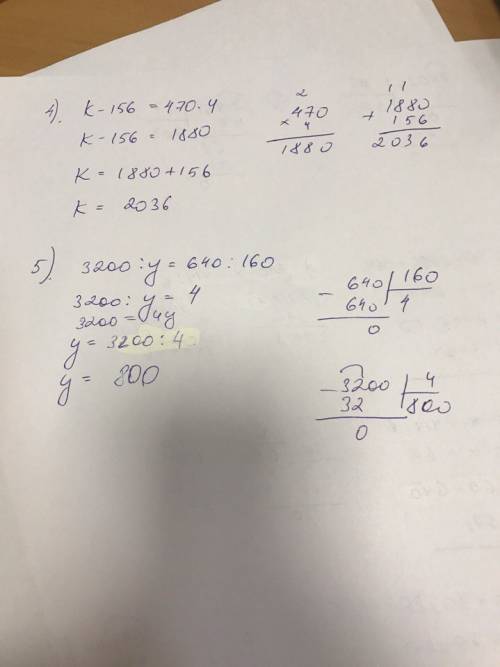 4). K - 156 = 470 · 4
K - 156 = 1880
K = 1880 + 156
K = 2036
2
× 470
4
1880
1 1
+ 1880
156
2036
5). 3200 : y = 640 : 160
3200 : y = 4
3200 = 4y
y = 3200 : 4
y = 800
- 640 | 160
640 4
0
- 3200 | 4
32 800
0